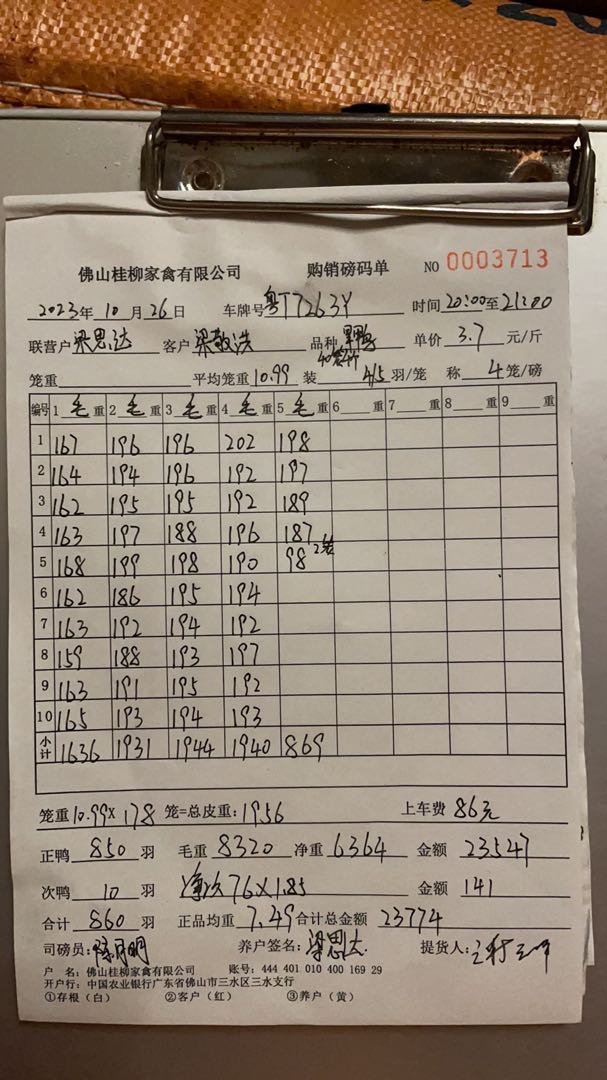 佛山桂柳家禽有限公司 购销磅码单 NO 0003713
2023年10月26日 车牌号粤T7263Y 时间20:00至21:00
联营户梁思达 客户梁敬洪 品种 单价3.7元/斤
笼重 平均笼重10.99 装4/5羽/笼 称4笼/磅
编号 1毛重 2毛重 3毛重 4毛重 5毛重 6重 7重 8重 9重
1 167 196 196 202 198
2 164 194 196 192 197
3 162 195 195 192 189
4 163 197 188 196 187
5 168 199 198 190 98 2笼
6 162 186 195 194
7 163 192 194 192
8 159 188 193 197
9 163 191 195 192
10 165 193 194 193
小计 1636 1931 1944 1940 869
笼重10.99×178笼=总皮重:1956 上车费86元
正鸭850羽 毛重8320 净重6364 金额23547
次鸭10羽 净次76×1.85 金额141
合计860羽 正品均重7.49 合计总金额23774
司磅员: 养户签名:梁思达 提货人:
户 名:佛山桂柳家禽有限公司 账号:444 401 010 400 169 29
开户行:中国农业银行广东省佛山市三水区三水支行
①存根(白) ②客户(红) ③养户(黄)